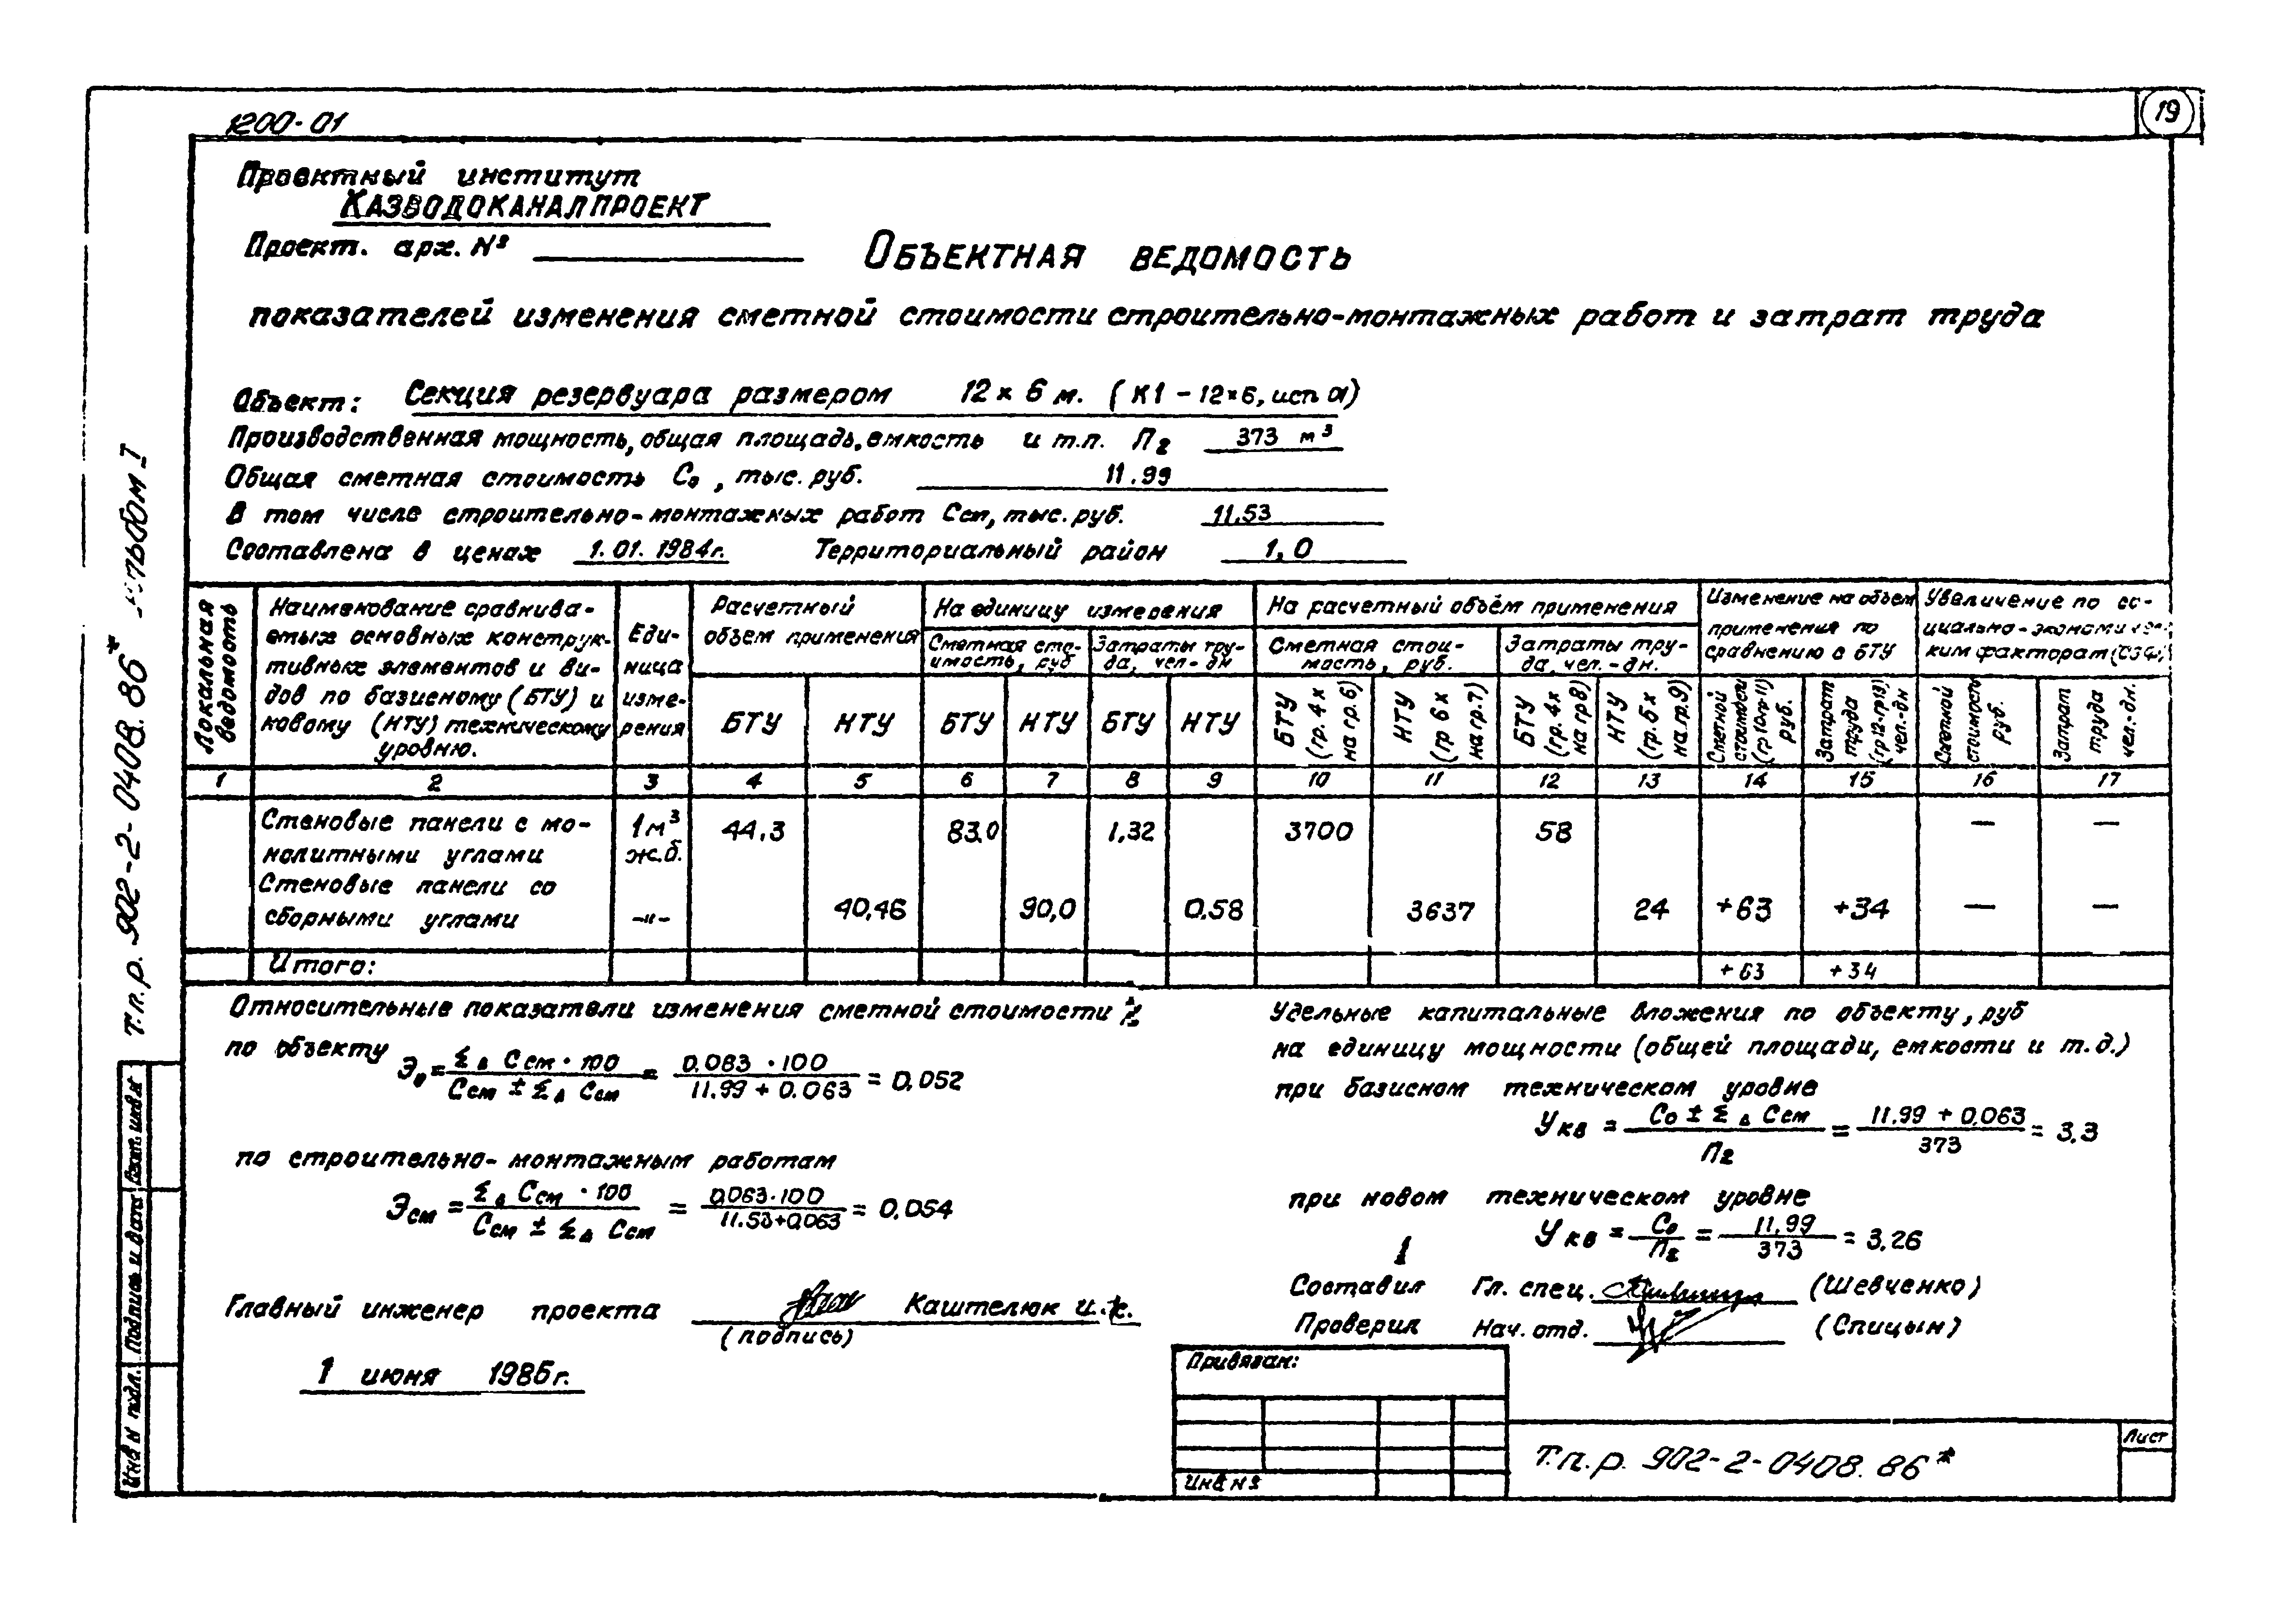 1200-01
19
Проектный институт
КАЗВОДОКАНАЛПРОЕКТ
Проект. арх. №
ОБЪЕКТНАЯ ВЕДОМОСТЬ
показателей изменения сметной стоимости строительно-монтажных работ и затрат труда
Объект: Секция резервуара размером 12×6 м. (К1-12×6, исп 01)
Производственная мощность, общая площадь, емкость и т.п. П2 373 м³
Общая сметная стоимость Со, тыс. руб. 11.99
В том числе строительно-монтажных работ Ссм, тыс. руб. 11.53
Составлена в ценах 1.01.1984г. Территориальный район 1,0
Локальная ведомость
Наименование сравнива-
емых основных конструк-
тивных элементов и ви-
дов по базисному (БТУ) и
новому (НТУ) техническому
уровню.
Еди-
ница
изме-
рения
Расчетный
объем применения
БТУ НТУ
На единицу измерения
Сметная сто-
имость, руб
Затраты тру-
да, чел-дн
БТУ НТУ БТУ НТУ
На расчетный объём применения
Сметная стои-
мость, руб.
Затраты тру-
да, чел.-дн.
БТУ (гр. 4 х на гр. 6)
НТУ (гр 6 х на гр. 7)
БТУ (гр. 4х на гр 8)
НТУ (гр. 5 х на гр. 9)
Изменение на объем
применения по
сравнению с БТУ
Сметной стоимости (гр 10-гр 11) руб.
Затрат труда (гр 12-гр 13) чел.-дн
Увеличение по со-
циально-экономичес-
ким факторам (СЭФ)
Сметной стоимость руб.
Затрат труда чел.-дн.
1 2 3 4 5 6 7 8 9 10 11 12 13 14 15 16 17
Стеновые панели с мо- 1м³ 44.3 83.0 1.32 3700 58 — —
нолитными углами ж.б.
Стеновые панели со
сборными углами -"- 40,46 90,0 0.58 3637 24 +63 +34 — —
Итого: +63 +34
Относительные показатели изменения сметной стоимости %
по объекту Эо = Σ Δ Ссм · 100 / Ссм ± Σ Δ Ссм = 0.063 · 100 / 11.99 + 0.063 = 0.052
по строительно-монтажным работам
Эсм = Σ Δ Ссм · 100 / Ссм ± Σ Δ Ссм = 0.063·100 / 11.53+0.063 = 0.054
Главный инженер проекта Каштелюк
(подпись)
1 июня 1986г.
Удельные капитальные вложения по объекту, руб
на единицу мощности (общей площади, емкости и т.д.)
при базисном техническом уровне
Укв = Со ± Σ Δ Ссм / П2 = 11.99 + 0.063 / 373 = 3.3
при новом техническом уровне
Укв = Со / П2 = 11.99 / 373 = 3.26
1
Составил Гл. спец. (Шевченко)
Проверил Нач. отд. (Спицын)
Привязан:
Инв №
Т.п.р. 902-2-0408.86*
Лист
т.п.р. 902-2-0408.86* Альбом I
Инв № подл. Подпись и дата Взам. инв №